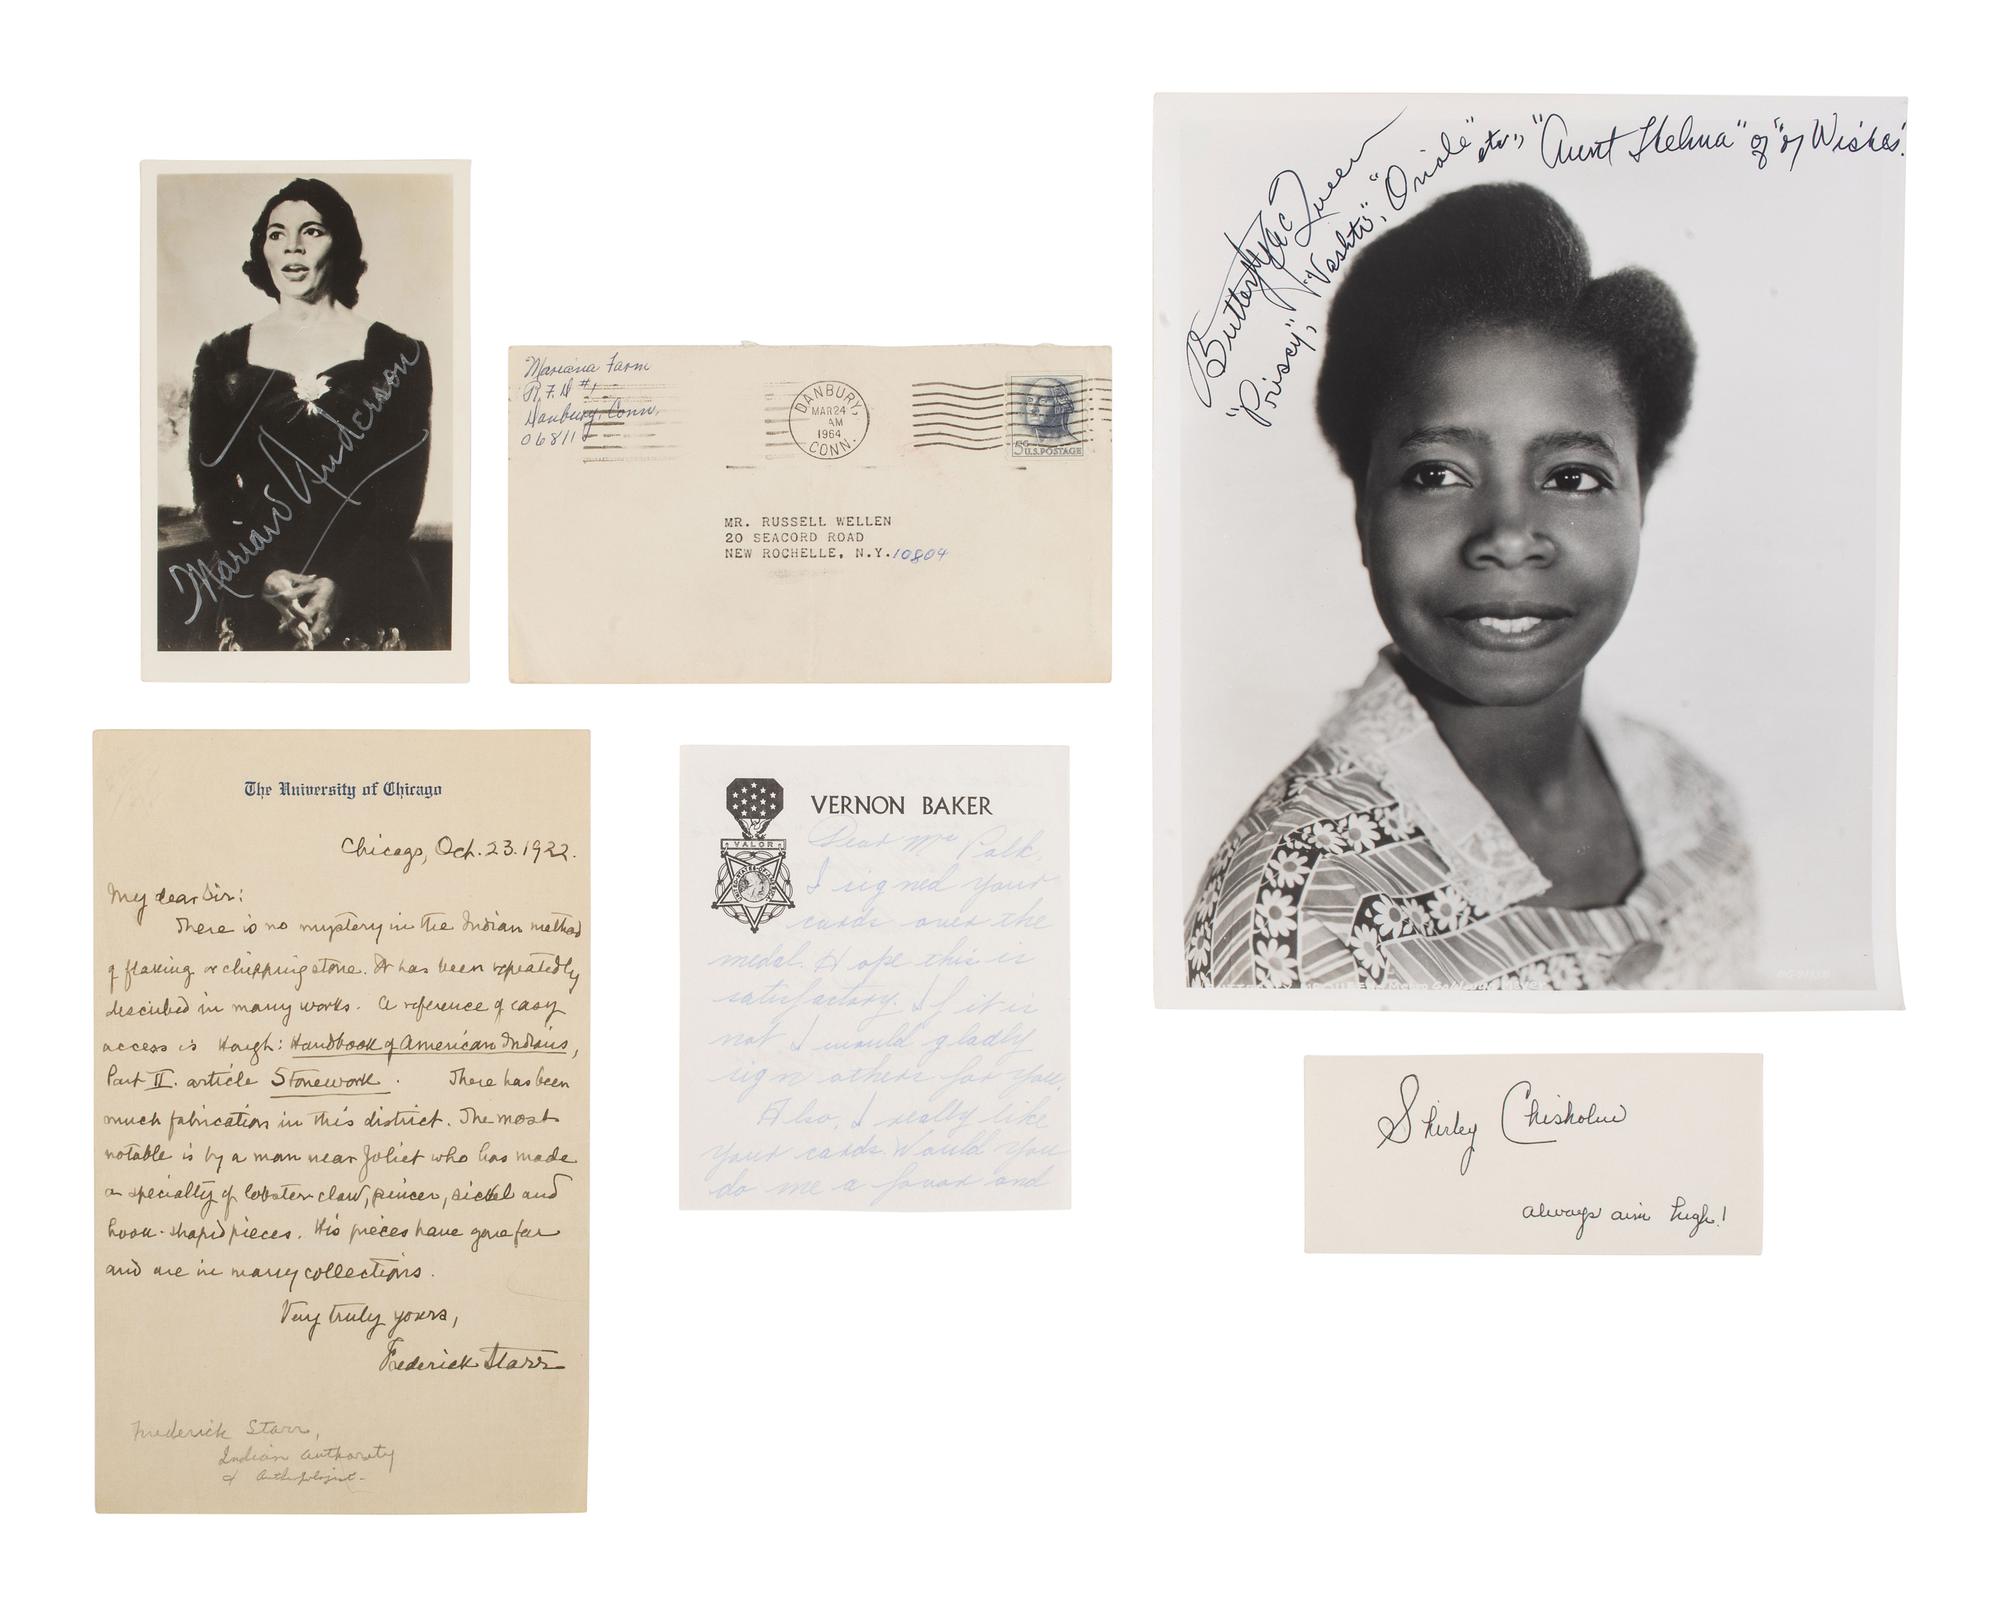 Marian Anderson
Mariana Farm
R.F.D #1
Danbury, Conn.
06811
DANBURY,
MAR 24
AM
1964
CONN.
5¢
U.S. POSTAGE
MR. RUSSELL WELLEN
20 SEACORD ROAD
NEW ROCHELLE, N.Y. 10804
Butterfly McQueen
"Priscy", "Vashti", "Oriole" etc, "Aunt Thelma" of "7 Wishes"
Metro Goldwyn Mayer
The University of Chicago
Chicago, Oct. 23. 1922.
My dear Sir:
There is no mystery in the Indian method
of flaking or chipping stone. It has been repeatedly
described in many works. A reference of easy
access is Hough: Handbook of American Indians,
Part II. article Stonework. There has been
much fabrication in this district. The most
notable is by a man near Joliet who has made
a specialty of lobster claw, pincer, sickel and
hook-shaped pieces. His pieces have gone far
and are in many collections.
Very truly yours,
Frederick Starr
Frederick Starr,
Indian authority
& Anthropologist-
VERNON BAKER
VALOR
Dear Mr Polk,
I signed your
cards over the
medal. Hope this is
satisfactory. If it is
not I would gladly
sign others for you.
Also, I really like
your cards. Would you
do me a favor and
Shirley Chisholm
always aim high!